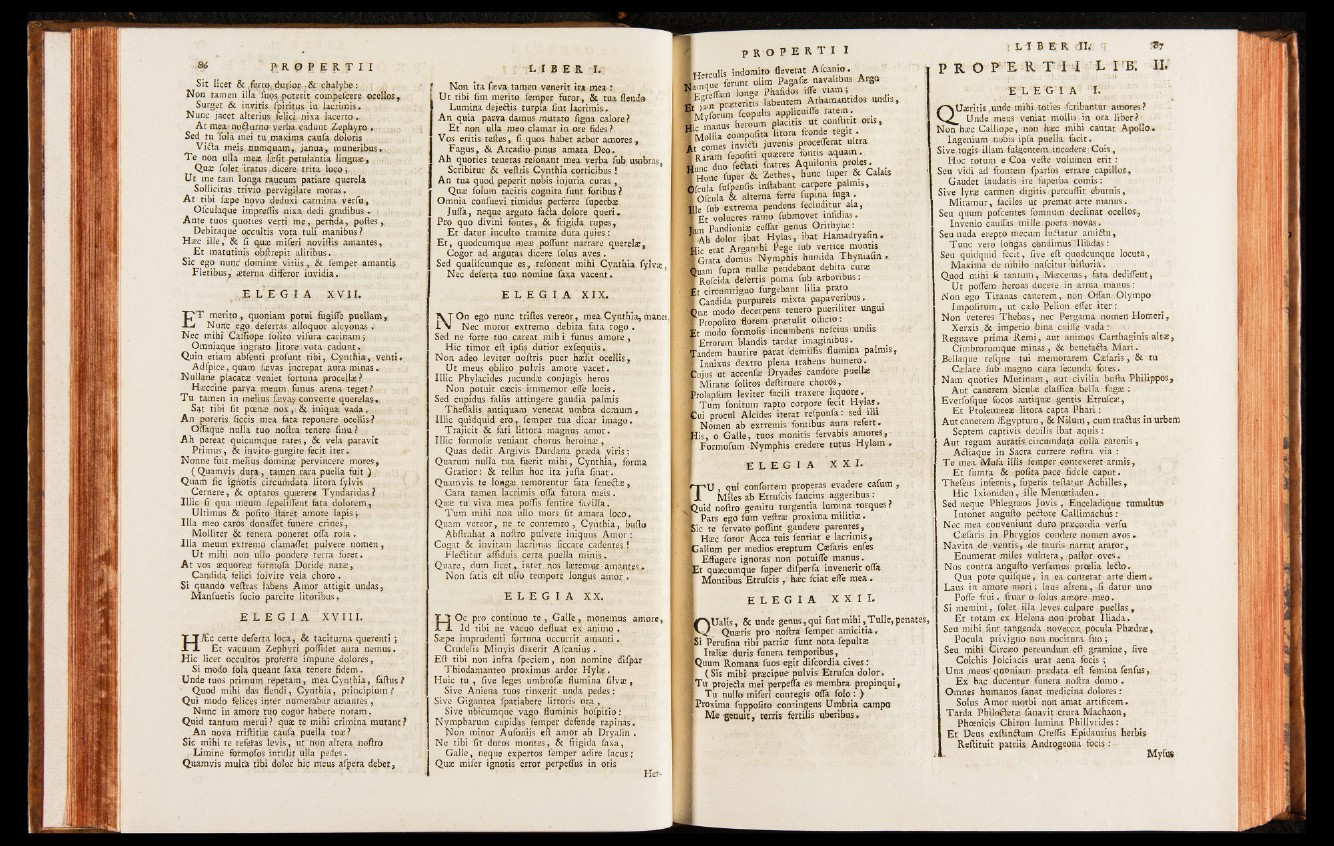 86 PROPERTII
Sit licet & ferro durior & chalybe:
Non tamen illa suos poterit compescere ocellos,
Surget & invitis spiritus in lacrimis.
Nunc jacet alterius felici nixa lacerto.
At mea nocturno verba cadunt Zephyro.
Sed tu sola mei tu maxima causa doloris
Victa meis numquam, janua, muneribus.
Te non ulla meæ læsit petulantia linguæ,
Quæ solet iratus dicere trita loco;
Ut me tam longa raucum patiare querela
Sollicitas trivio pervigilare moras.
At tibi sæpe novo deduxi carmina versu,
Osculaque impressis nixa dedi gradibus.
Ante tuos quoties verti me, perfida, postes,
Debitaque occultis vota tuli manibus?
Hæc ille, & si quæ miseri novistis amantes,
Et matutinis obstrepit alitibus.
Sic ego nunc dominæ vitiis, & semper amantis
Fletibus, æterna differor invidia.
ELEGIA XVII.
ET merito, quoniam potui fugisse puellam,
Nunc ego desertas alloquor alcyonas.
Nec mihi Cassiope solito visura carinam;
Omniaque ingrato litore vota cadunt.
Quin etiam absenti prosunt tibi, Cynthia, venti.
Adspice, quam sævas increpat aura minas.
Nullane placatæ veniet fortuna procellæ?
Hæccine parva meum funus arena teget?
Tu tamen in melius sævas converte querelas.
Sat tibi sit pœnæ nox, & iniqua vada.
An poteris siccis mea fata reponere ocellis?
Ossaque nulla tuo nostra tenere sinu?
Ah pereat quicumque rates, & vela paravit
Primus, & invito gurgite fecit iter.
Nonne fuit melius dominæ pervincere mores,
(Quamvis dura, tamen rara puella fuit)
Quam sic ignotis circumdata litora sylvis
Cernere, & optatos quærere Tyndaridas?
Illic si qua meum sepelissent fata dolorem,
Ultimus & posito staret amore lapis;
Illa meo caros donasset funere crines,
Molliter & tenera poneret ossa rosa.
Illa meum extremo clamasset pulvere nomen,
Ut mihi non ullo pondere terra foret.
At vos æquoreæ formosa Doride natæ,
Candida felici solvite vela choro.
Si quando vestras labens Amor attigit undas,
Mansuetis socio parcite litoribus.
ELEGIA XVIII.
HÆc certe deserta loca, & taciturna querenti;
Et vacuum Zephyri possidet aura nemus.
Hic licet occultos proferre impune dolores,
Si modo sola queant saxa tenere fidem.
Unde tuos primum repetam, mea Cynthia, fastus?
Quod mihi das flendi, Cynthia, principium?
Qui modo felices inter numerabar amantes,
Nunc in amore tuo cogor habere notam.
Quid tantum merui? quæ te mihi crimina mutant?
An nova tristitiæ causa puella tuæ?
Sic mihi te referas levis, ut non altera nostro
Limine formosos intulit ulla pedes.
Quamvis multa tibi dolor hic meus aspera debet,
LIBER I.
Non ita sæva tamen venerit ira mea:
Ut tibi sim merito semper furor, & tua flendo
Lumina dejectis turpia sint lacrimis.
An quia parva damus mutato signa calore?
Et non ulla meo clamat in ore fides?
Vos eritis testes, si quos habet arbor amores,
Fagus, & Arcadio pinus amata Deo.
Ah quoties teneras resonant mea verba sub umbras,
Scribitur & vestris Cynthia corticibus!
An tua quod peperit nobis injuria curas,
Quæ solum tacitis cognita sunt foribus?
Omnia consuevi timidus perferre superbæ
Jussa, neque arguto facta dolore queri.
Pro quo divini fontes, & frigida rupes,
Et datur inculto tramite dura quies:
Et, quodcumque meæ possunt narrare querelæ,
Cogor ad argutas dicere solus aves.
Sed qualiscumque es, resonent mihi Cynthia sylvæ,
Nec deserta tuo nomine saxa vacent.
ELEGIA XIX.
NOn ego nunc tristes vereor, mea Cynthia, manes,
Nec moror extremo debita fata rogo.
Sed ne forte tuo careat mihi funus amore,
Hic timor est ipsis durior exsequiis.
Non adeo leviter nostris puer hæsit ocellis,
Ut meus oblito pulvis amore vacet.
Illic Phylacides jucundæ conjugis heros
Non potuit cæcis immemor esse locis.
Sed cupidus falsis attingere gaudia palmis
Thessalis antiquam venerat umbra domum.
Illic quidquid ero, semper tua dicar imago.
Trajicit & fati littora magnus amor.
Illic formosæ veniant chorus heroinæ,
Quas dedit Argivis Dardana præda viris;
Quarum nulla tua fuerit mihi, Cynthia, forma
Gratior: & tellus hoc ita justa sinat.
Quamvis te longæ remorentur fata senectæ,
Cara tamen lacrimis ossa futura meis.
Quæ tu viva mea possis sentire favilla.
Tum mihi non ullo mors sit amara loco.
Quam vereor, ne te contemto, Cynthia, busto
Abstrahat a nostro pulvere iniquus Amor:
Cogat & invitam lacrimas siccare cadentes!
Flectitur assiduis certa puella minis.
Quare, dum licet, inter nos lætemur amantes.
Non satis est ullo tempore longus amor.
ELEGIA XX.
HOc pro continuo te, Galle, monemus amore,
Id tibi ne vacuo defluat ex animo.
Sæpe imprudenti fortuna occurrit amanti.
Crudelis Minyis dixerit Ascanius.
Est tibi non infra speciem, non nomine dispar
Thiodamanteo proximus ardor Hylæ.
Huic tu, sive leges umbrosæ flumina silvæ,
Sive Aniena tuos tinxerit unda pedes:
Sive Gigantea spatiabere littoris ora,
Sive ubicumque vago fluminis hospitio:
Nympharum cupidas semper defende rapinas.
Non minor Ausoniis est amor ah Dryasin.
Ne tibi sit duros montes, & frigida saxa,
Galle, neque expertos semper adire lacus:
Quæ miser ignotis error perpessus in oris
Her-
PROPERTII
Herculis indomito fleverat Ascanio.
Namque ferunt olim Pagasæ navalibus Argo
Egressam longe Phasidos isse viam;
Et jam præteritis labentem Athamantidos undis,
Mysorum scopulis applicuisse ratem.
Hic manus heroum placitis ut constitit oris,
Mollia composita litora fronde tegit.
At comes invicti juvenis processerat ultra
Raram sepositi quærere fontis aquam.
Hunc duo sectati fratres Aquilonia proles.
Hunc super & Zethes, hunc super & Calais
Oscula suspensis instabant carpere palmis,
Oscula & alterna ferre supina fuga.
Ille sub extrema pendens secluditur ala,
Et volucres ramo submovet insidias.
Jam Pandioniæ cessat genus Orithyiæ:
Ah dolor ibat Hylas, ibat Hamadryasin.
Hic erat Arganthi Pege sub vertice montis
Grata domus Nymphis humida Thyniasin.
Quam supra nullæ pendebant debita curæ
Roscida desertis poma sub arboribus:
Et circumriguo surgebant lilia prato
Candida purpureis mixta papaveribus.
Quæ modo decerpens tenero pueriliter ungui
Proposito florem prætulit officio:
Et modo formosis incumbens nescius undis
Errorem blandis tardat imaginibus.
Tandem haurire parat demissis flumina palmis,
Innixus dextro plena trahens humero.
Cujus ut accensæ Dryades candore puellæ
Miratæ solitos destituere choros,
Prolapsum leviter facili traxere liquore.
Tum sonitum rapto corpore fecit Hylas.
Cui procul Alcides iterat responsa: sed illi
Nomen ab extremis fontibus aura refert.
His, o Galle, tuos monitis servabis amores,
Formosum Nymphis credere tutus Hylam.
ELEGIA XXI.
TU, qui consortem properas evadere casum,
Miles ab Etruscis saucius aggeribus:
Quid nostro gemitu turgentia lumina torques?
Pars ego sum vestræ proxima militiæ.
Sic te servato possint gaudere parentes,
Hæc soror Acca tuis sentiat e lacrimis,
Gallum per medios ereptum Cæsaris enses
Effugere ignotas non potuisse manus.
Et quæcumque super dispersa invenerit ossa
Montibus Etruscis, hæc sciat esse mea.
ELEGIA XXII.
QUalis, & unde genus, qui sint mihi, Tulle, penates,
Quæris pro nostra semper amicitia.
Si Perusina tibi patriæ sunt nota sepultæ
Italiæ duris funera temporibus,
Quum Romana suos egit discordia cives:
(Sis mihi præcipue pulvis Etrusca dolor.
Tu projecta mei perpessa es membra propinqui,
Tu nullo miseri contegis ossa solo:)
Proxima supposito contingens Umbria campo
Me genuit, terris fertilis uberibus.
LIBER II. 87
PROPERTII LIB. II.
ELEGIA I.
QUæritis unde mihi toties scribantur amores?
Unde meus veniat mollis in ora liber?
Non hæc Calliope, non hæc mihi cantat Apollo.
Ingenium nobis ipsa puella facit.
Sive togis illam fulgentem incedere Cois,
Hoc totum e Coa veste volumen erit:
Seu vidi ad frontem sparsos errare capillos,
Gaudet laudatis ire superba comis:
Sive lyræ carmen digitis percussit eburnis,
Miramur, faciles ut premat arte manus.
Seu quum poscentes somnum declinat ocellos,
Invenio caussas mille poeta novas.
Seu nuda erepto mecum luctatur amictu,
Tunc vero longas condimus Iliadas:
Seu quidquid fecit, sive est quodcunque locuta,
Maxima de nihilo nascitur historia.
Quod mihi si tantum, Mæcenas, fata dedissent,
Ut possem heroas ducere in arma manus:
Non ego Titanas canerem, non Ossan Olympo
Impositum, ut cælo Pelion esset iter:
Non veteres Thebas, nec Pergama nomen Homeri,
Xerxis & imperio bina coisse vada:
Regnave prima Remi, aut animos Carthaginis altæ,
Cimbrorumque minas, & benefacta Mari.
Bellaque resque tui memorarem Cæsaris, & tu
Cæsare sub magno cura secunda fores.
Nam quoties Mutinam, aut civilia busta Philippos,
Aut canerem Siculæ classica bella fugæ:
Eversosque focos antiquæ gentis Etruscæ,
Et Ptolemeeæ litora capta Phari:
Aut canerem Ægyptum, & Nilum, cum tractus in urbem
Septem captivis debilis ibat aquis:
Aut regum auratis circumdata colla catenis,
Actiaque in Sacra currere rostra via:
Te mea Musa illis semper contexeret armis,
Et sumta & posita pace fidele caput.
Theseus infernis, superis testatur Achilles,
Hic Ixioniden, ille Menœtiaden.
Sed neque Phlegræos Jovis, Enceladique tumultus
Intonet angusto pectore Callimachus:
Nec mea conveniunt duro præcordia versu
Cæsaris in Phrygios condere nomen avos.
Navita de ventis, de tauris narrat arator,
Enumerat miles vulnera, pastor oves.
Nos contra angusto versamus prœlia lecto.
Qua pote quisque, in ea conterat arte diem.
Laus in amore mori: laus altera, si datur uno
Posse frui. fruar o solus amore meo.
Si memini, solet illa leves culpare puellas,
Et totam ex Helena non probat Iliada.
Seu mihi sint tangenda novercæ pocula Phædræ,
Pocula privigno non nocitura suo;
Seu mihi Circæo pereundum est gramine, sive
Colchis Jolciacis urat aena focis;
Una meos quoniam prædata est femina sensus,
Ex hac ducentur funera nostra domo.
Omnes humanos sanat medicina dolores:
Solus Amor morbi non amat artificem.
Tarda Philoctetæ sanavit crura Machaon,
Phœnicis Chiron lumina Phillyrides:
Et Deus exstinctum Cressis Epidaurius herbis
Restituit patriis Androgeona focis:
Mysus